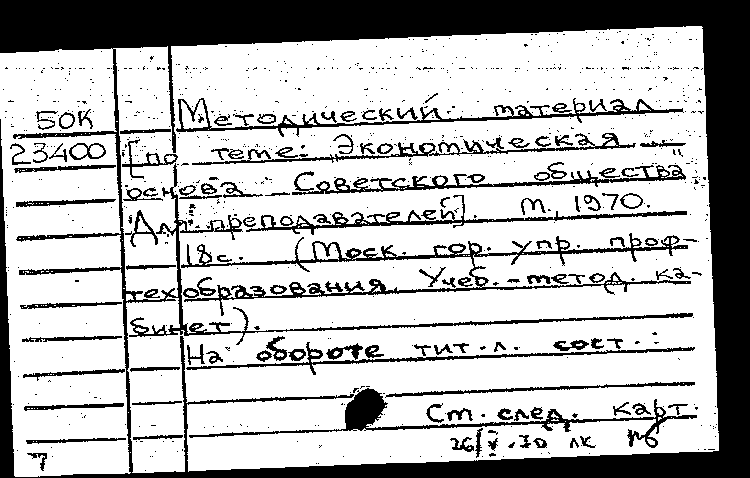 50К Методический материал
23400 [по теме: „Экономическая
основа Советского общества".
Для преподавателей]. М., 1970.
18с. (Моск. гор. упр. проф-
техобразования. Учеб.-метод. ка-
бинет).
На обороте тит.л. сост.:
См. след. карт.
26/V.70 лк
7